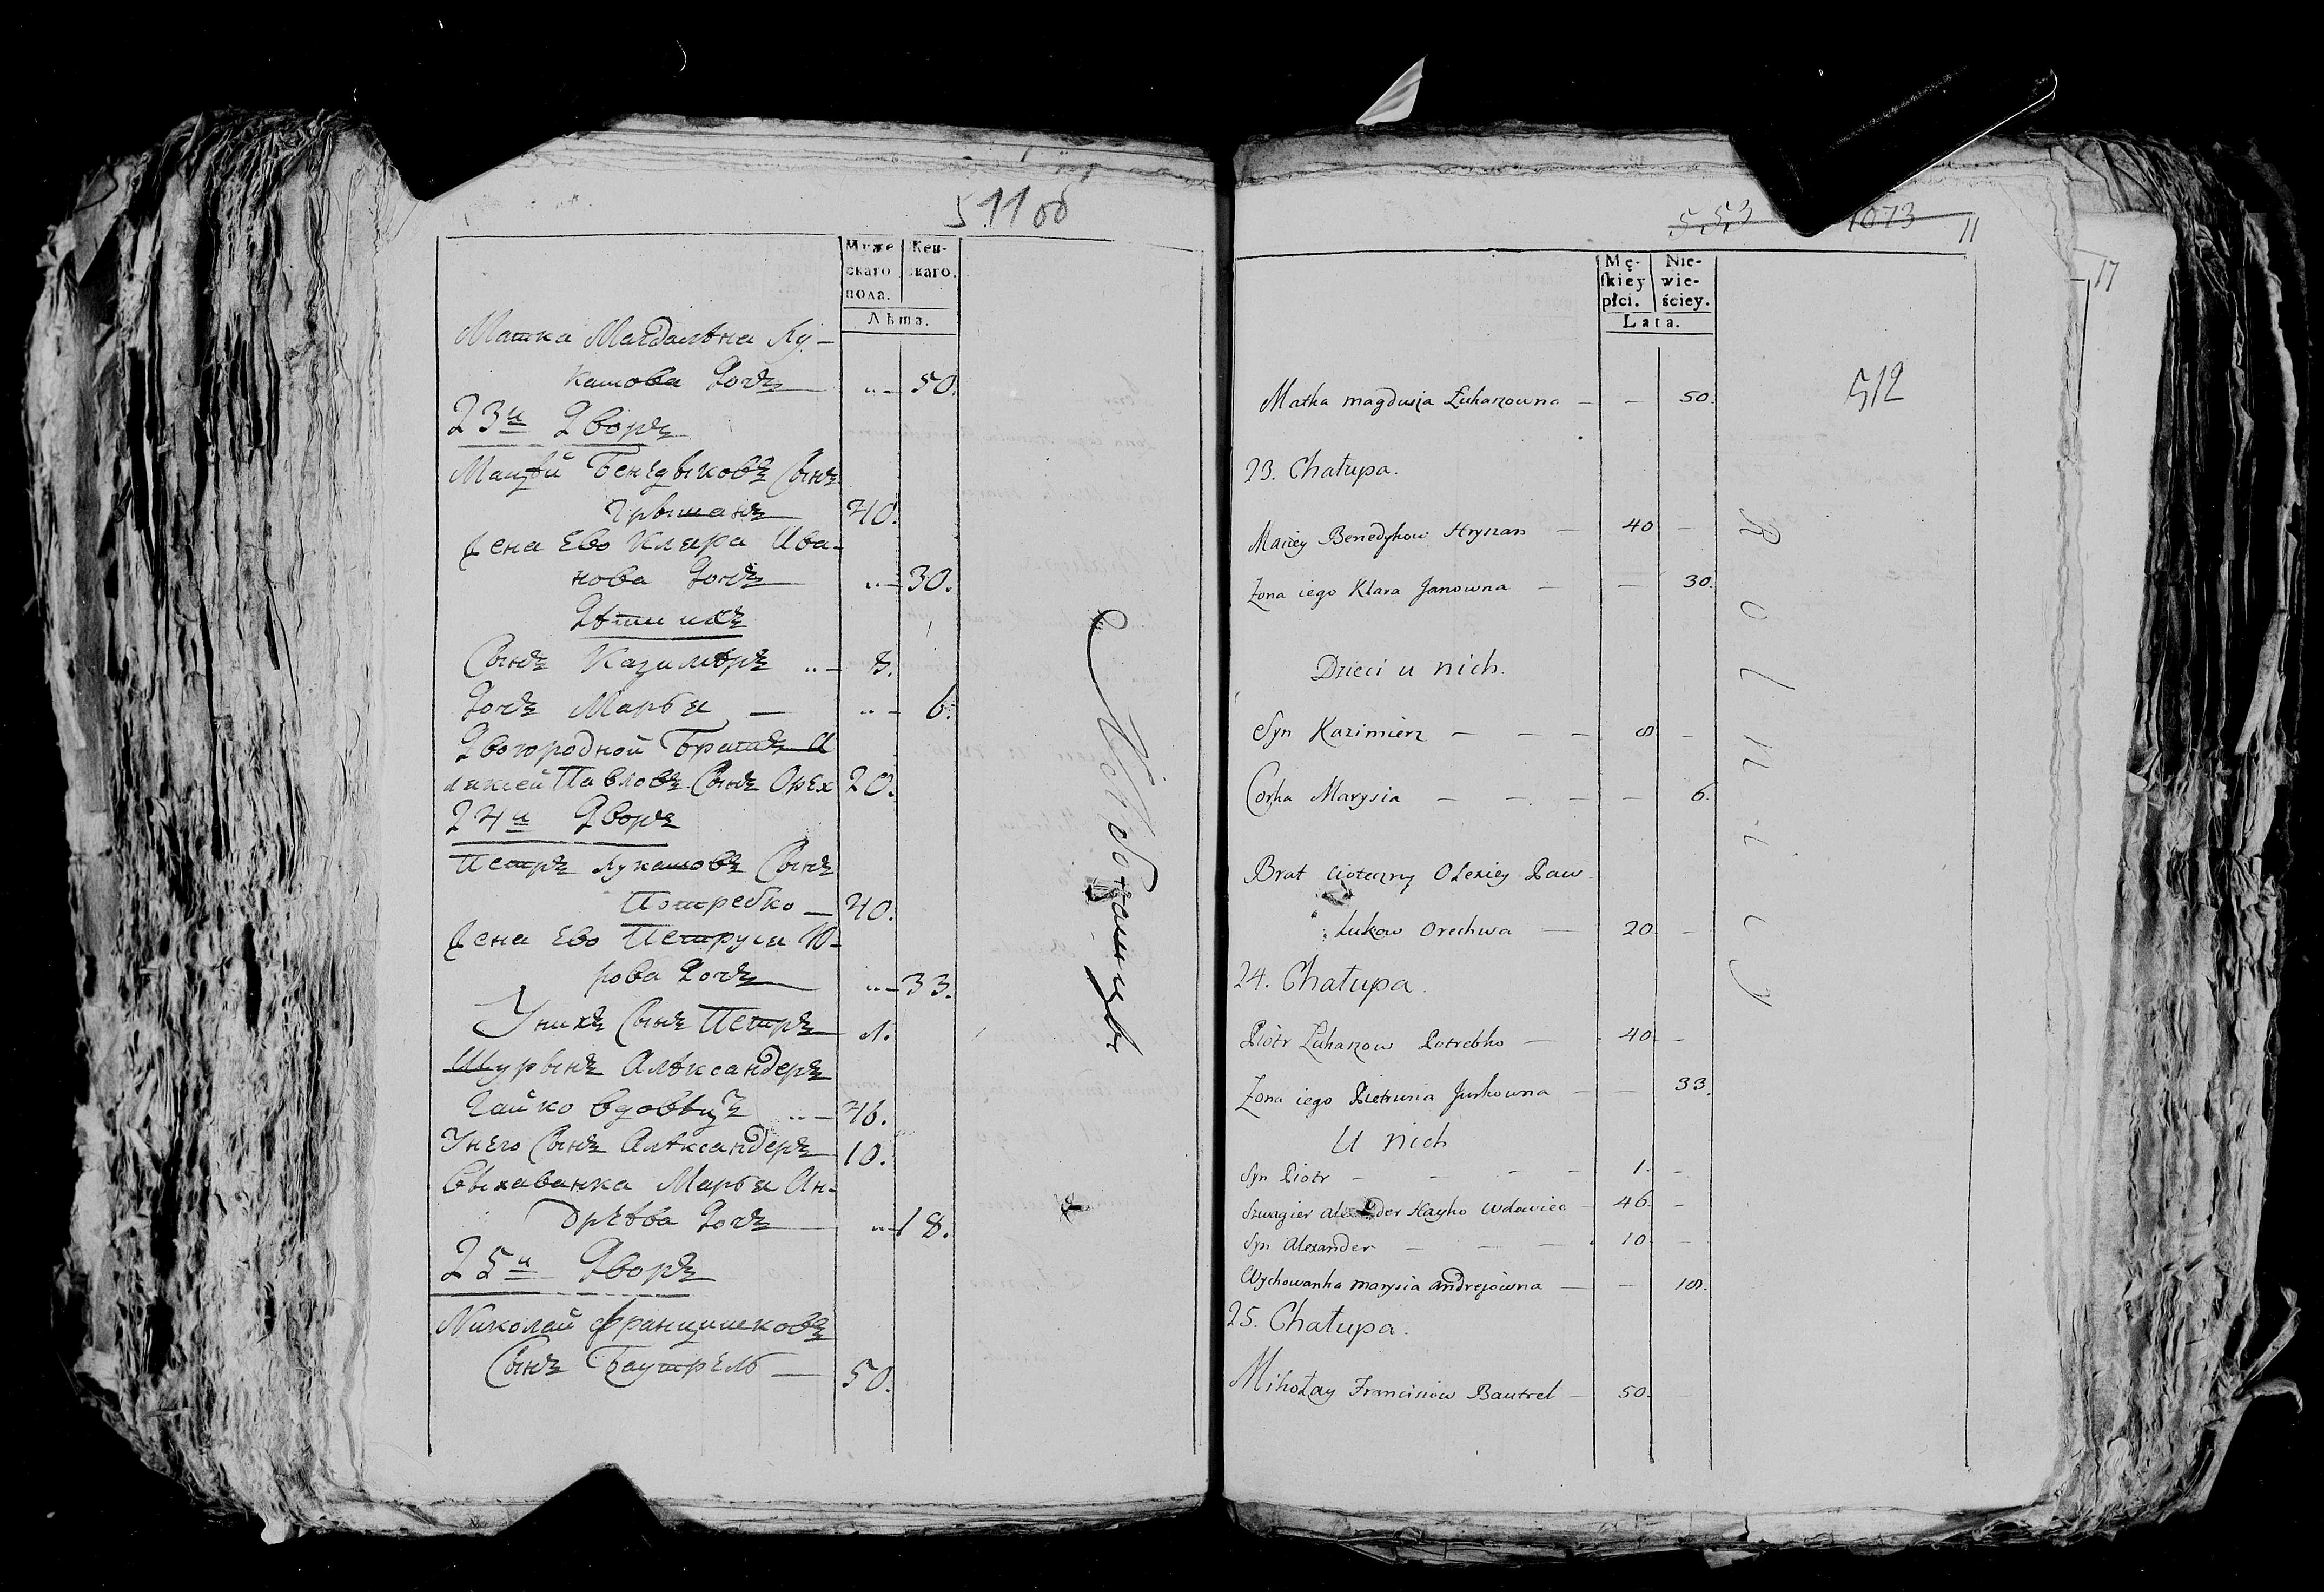 511об
Муже
скаго
пола.
Жен-
скаго.
Лѣта.
Матка Магдалѣна Лу-
кашова Дочь 50.
23й Дворъ
Мацѣй Бенедыковъ Сынъ
Грышанъ 40.
Жена Ево Клара Ива-
нова Дочь 30.
Дѣти ихъ
Сынъ Казимѣръ 8.
Дочь Марья 6.
Двоюродной Братъ А
лексей Павловъ Сынъ Орех 20.
24й Дворъ
Петръ Лукашовъ Сынъ
Потребко 40.
Жена Ево Петруся Ю-
рова Дочь 33.
У нихъ Сынъ Петръ 1.
Шурынъ Алѣксандеръ
Гайко вдовецъ 46.
У него Сынъ Алѣксандеръ 10.
Выхаванка Марья Ан-
дрѣева Дочь 18.
25й Дворъ
Николай Францишковъ
Сынъ Баутрель 50.
Хлебопашцы
553 1073 11
17
Mę-
skiey
płci.
Nie-
wie-
ściey.
Lata.
512
Matka magdusia Łukaszowna — — 50.
23. Chałupa.
Maciey Benedykow Hryszan — 40 —
Żona iego Klara Janowna — — 30.
Dzieci u nich.
Syn Kazimierz — — — 8 —
Corka Marysia — — — — 6.
Brat cioteczny Olexiey Paw
Lukow Orechwa — 20. —
24. Chałupa.
Piotr Łukaszow Potrebko — 40. —
Żona iego Pietrusia Jurkowna — — 33.
U nich
Syn Piotr — — — — 1. —
Szwagier Alexander Hayko Wdowiec — 46. —
Syn Alexander — — — 10. —
Wychowanka marysia Andrejowna — — 18.
25. Chałupa.
Mikołay Franciszkow Bautrel — 50. —
Rolnicy